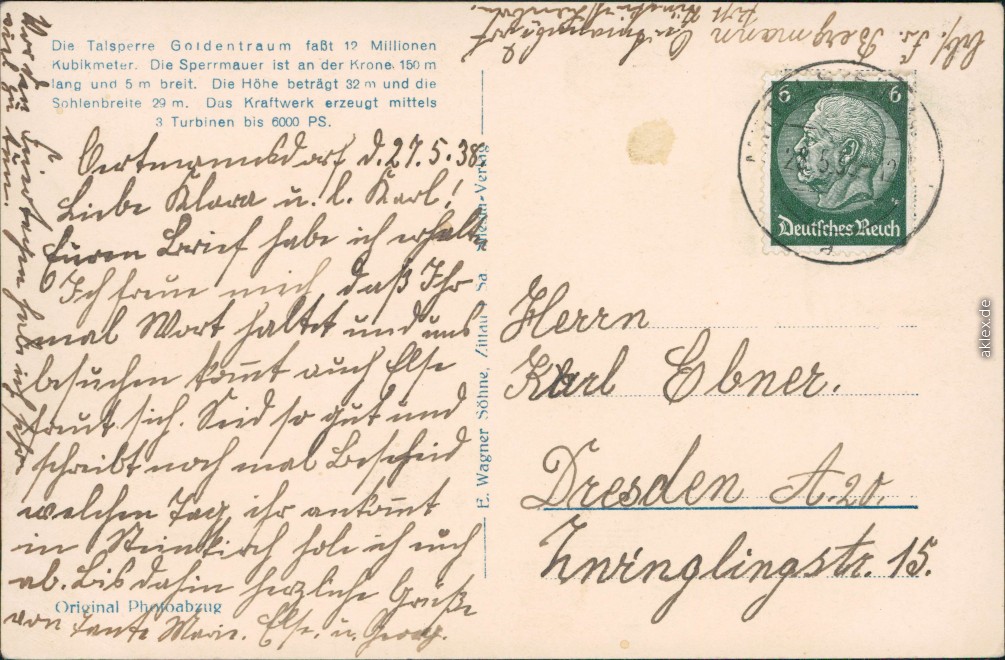 Die Talsperre Goldentraum faßt 12 Millionen
Kubikmeter. Die Sperrmauer ist an der Krone 150 m
lang und 5 m breit. Die Höhe beträgt 32 m und die
Sohlenbreite 29 m. Das Kraftwerk erzeugt mittels
3 Turbinen bis 6000 PS.
Oertmannsdorf, d. 27.5.38.
Liebe Klara u. l. Karl!
Euren Brief habe ich erhalten
Ich freue mich daß Ihr
mal Wort haltet und uns
besuchen kommt auch Else
freut sich. Seid so gut und
schreibt noch mal Bescheid
welchen Tag ihr ankommt
in Steinkirch hole ich euch
ab. Bis dahin herzliche Grüße
von Tante Marie. Else. u. Georg.
viel zu tun.
Original Photoabzug
E. Wagner Söhne, Zittau Sa. Verlag
Abs. Fr. Bergmann Oertmannsdorf
Post
6 6
Deutsches Reich
Herrn
Karl Ebner.
Dresden A.20.
Zwinglingstr. 15.
aklex.de